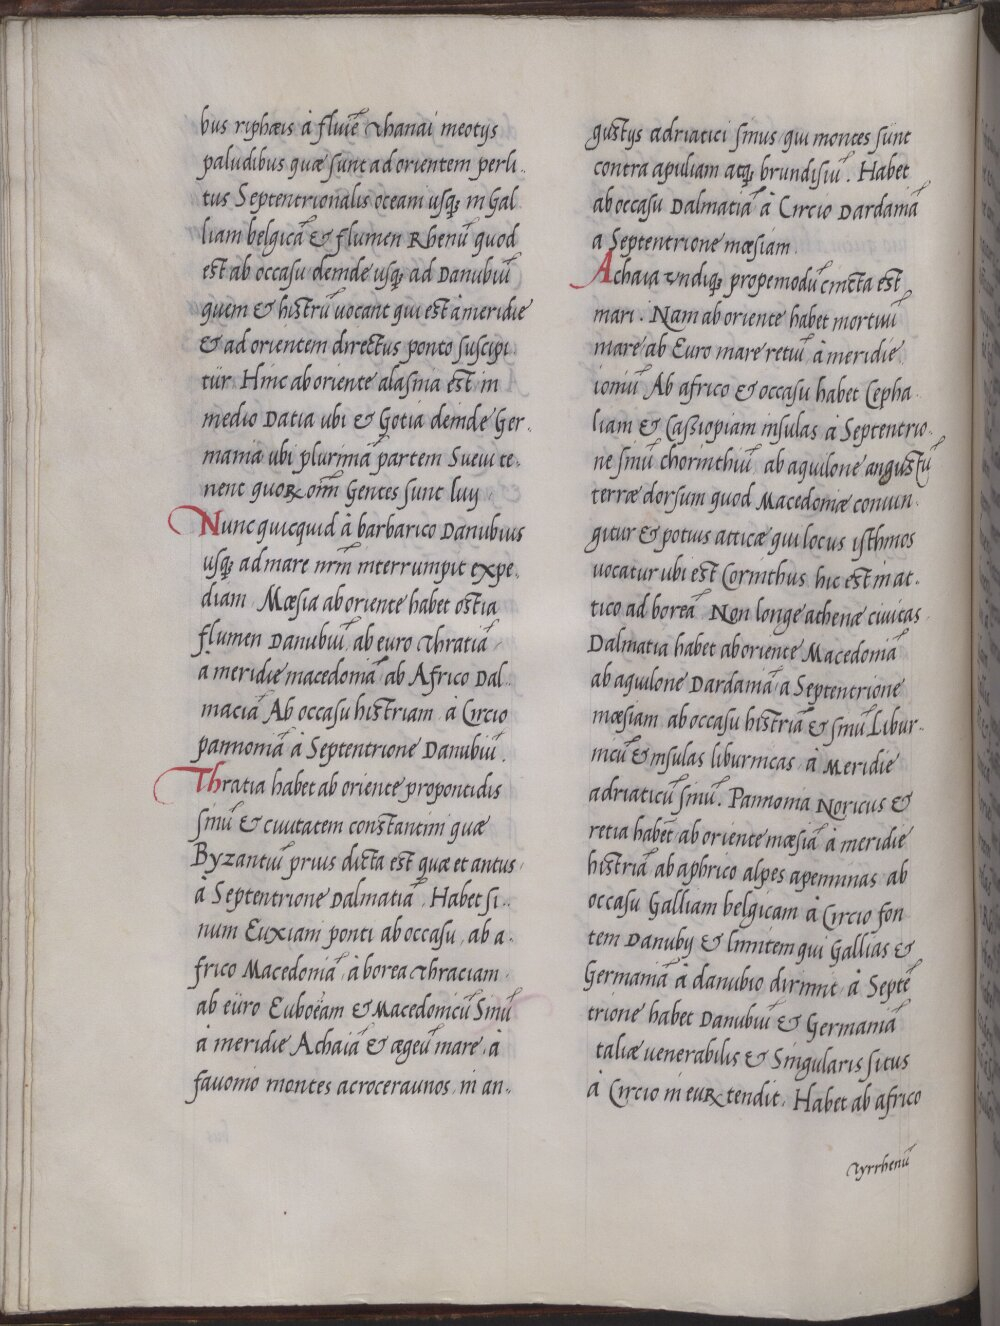 bus riphæis à fluiē thanai meotys
paludibus quæ sunt ad orientem perli-
tus Septentrionalis oceani usq; in Gal
liam belgicā & flumen Rhenū quod
est ab occasu deinde usq; ad Danubiū
quem & histrū uocant qui est à meridie
& ad orientem directus ponto suscipi
tür. Hinc ab oriente alasnia est in
medio Datia ubi & Gotia deinde Ger-
mania ubi plurimā partem Sueui te-
nent quoꝝ om̄ Gentes sunt luij
Nunc quicquid à barbarico Danubius
usq; ad mare nr̄m interrumpit expe-
diam. Mœsia ab oriente habet ostia
flumen Danubiū, ab euro thratiā
à meridie macedoniā ab Africo Dal-
maciā Ab occasu histriam à Circio
pannoniā à Septentrione Danubiū.
Thratia habet ab oriente propontidis
sinū & ciuitatem constantini quæ
Byzantiū prius dicta est quæ et antus
à Septentrione Dalmatiā. Habet si-
num Euxiam ponti ab occasu, ab a-
frico Macedoniā, à borea thraciam
ab eüro Euboëam & Macedonicū Sinū
à meridie Achaiā & ægeū mare, à
fauonio montes acroceraunos, in an-
gustijs adriatici sinus qui montes sünt
contra apuliam atq; brundisiū. Habet
ab occasu Dalmatiā à Circio Dardaniā
a Septentrione mœsiam.
Achaia undiq; propemodū cincta est
mari. Nam ab oriente habet mortuū
mare ab Euro mare retuū à meridie
ioniū Ab africo & occasu habet Cepha
liam & Caßiopiam insulas à Septentrio-
ne sinū chorinthiū, ab aquilone angustū
terræ dorsum quod Macedoniæ coniun-
gitur & potius atticæ qui locus isthmos
uocatur ubi est Corinthus, hic est in at-
tico ad boreā Non longe athenæ ciuitas
Dalmatia habet ab oriente Macedoniā
ab aquilone Dardaniā à Septentrione
mœsiam ab occasu histriā & sinū Libur-
nicū & insulas liburnicas, à Meridie
adriaticū sinū. Pannonia Noricus &
retia habet ab oriente mœsiā à meridie
histriā ab aphrico alpes apeninas ab
occasu Galliam belgicam à Circio fon
tem Danubij & limitem qui Gallias &
Germaniā à danubio dirimit, à Septē
trione habet Danubiū & Germaniā
taliæ uenerabilis & Singularis situs
à Circio in euꝝ tendit. Habet ab africo
tyrrhenū